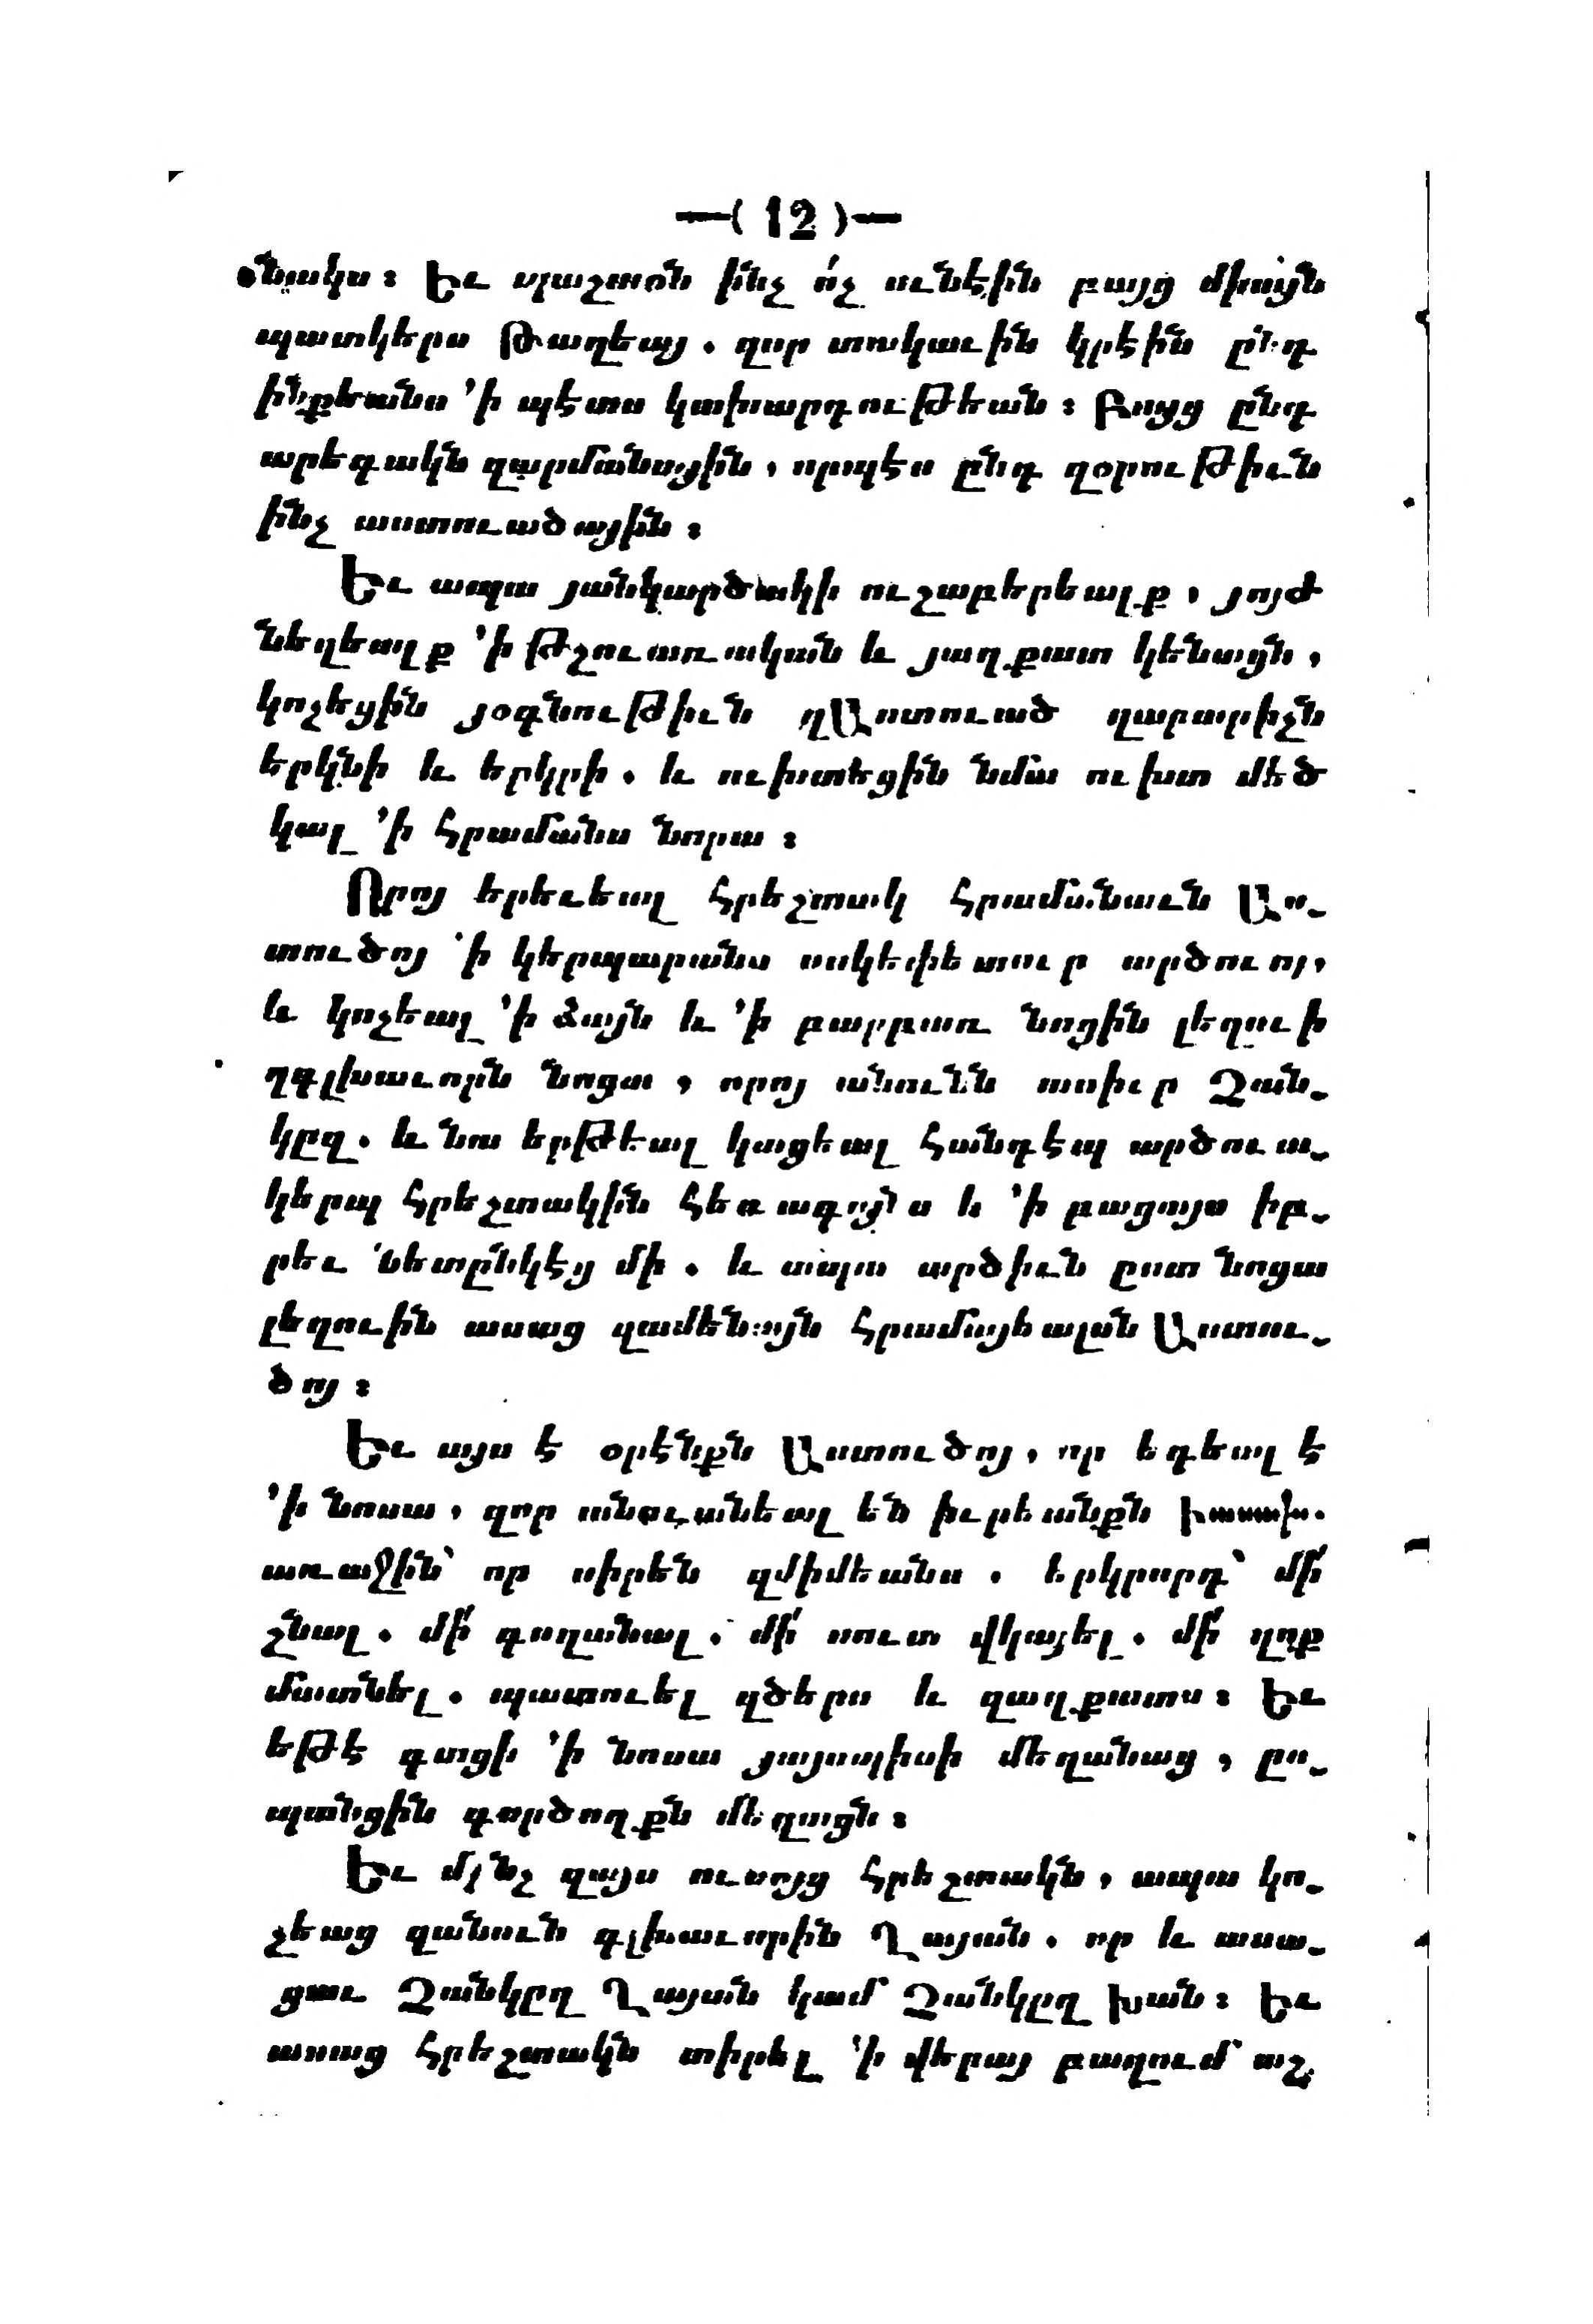 —( 12 )—
նակս։ Եւ պաշտօն ինչ ո՛չ ունէին բայց միայն
պատկերս Թաղեայ. զոր տակաւին կրէին ընդ
ինքեանս ՚ի պէտս կախարդութեան։ Բայց ընդ
արեգակն զարմանային, որպէս ընդ զօրութիւն
ինչ աստուածային։
Եւ ապա յանկարծակի ուշաբերեալք, յոյժ
նեղեալք ՚ի թշուառական և յաղքատ կենացն,
կոչեցին յօգնութիւն զԱստուած զարարիչն
երկնի և երկրի. և ուխտեցին նմա ուխտ մեծ
կալ ՚ի հրամանս նորա։
Որոյ երեւեալ հրեշտակ հրամանաւն Աս-
տուծոյ ՚ի կերպարանս ոսկեփետուր արծուոյ,
և կոչեալ ՚ի ձայն և ՚ի բարբառ նոցին լեզուի
զգլխաւորն նոցա, որոյ անունն ասիւր Չան-
կըզ. և նա երթեալ կացեալ հանդէպ արծուա-
կերպ հրեշտակին հեռագոյն ս և ՚ի բացոյս իբ-
րեւ նետընկէց մի. և ապա արծիւն ըստ նոցա
լեզուին ասաց զամենայն հրամայեալսն Աստու-
ծոյ։
Եւ այս է օրէնքն Աստուծոյ, որ եդեալ է
՚ի նոսա, զոր անուանեալ են իւրեանքն իասախ.
առաջին՝ որ սիրեն զմիմեանս. երկրորդ՝ մի՛
շնալ. մի՛ գողանալ. մի՛ սուտ վկայել. մի՛ զոք
մատնել. պատուել զծերս և զաղքատս։ Եւ
եթէ գտցի ՚ի նոսա յայսպիսի մեղանաց, ըս-
պանցին գործողքն մեղացն։
Եւ մինչ զայս ուսոյց հրեշտակն, ապա կո-
չեաց զանուն գլխաւորին Ղայան. որ և ասա-
ցաւ Չանկըղ Ղայան կամ Չանկըղ խան։ Եւ
ասաց հրեշտակն տիրել ՚ի վերայ բազում աշ